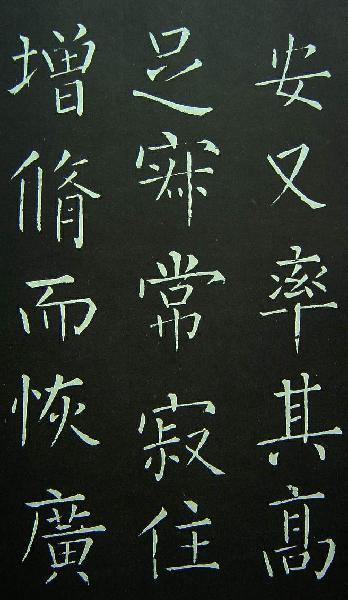 安又率其髙
足常寂住
增脩而恢廣